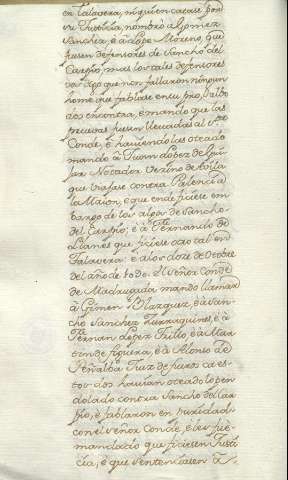 en Talavera, ni quien catase por
su Justicia, nombrò a Gomez
Sanchez, è à Lope Moreno, que
fuesen defensores de Sancho del
Carpio, mas los tales defensores
digo que non fallaron ningun
home que fablase en su pro, salbo
dos encontra, e mando que las
pruevas fuesen llevadas al Sor
Conde, è haviendolas oteado
mando à Juan Lopez de
Notador Vecino de Avila
que viajase contra Palencia
la Maior, e que ende ficiese em-
bargo de los algos de Sancho
del Carpio; è à Fernando de
Llanes que ficiese otro tal en
Talavera: è a los doze de Otobre
del año de
de Madrugada mando llamar
à Gimen Blazquez, è à San-
cho Sanchez Zurraquines, è à
Fernan Lopez Trillo, è à Mar-
tin de Figuera, è à Alonso de
Peñalba Juez de fueros ca es-
tos dos havian oteado lo pen-
dolado contra Sancho del Car-
pio, è fablaron en puridad
con el Señor Conde, è les fue
mandado que ficiesen Justi-
cia, è que sentenciasen